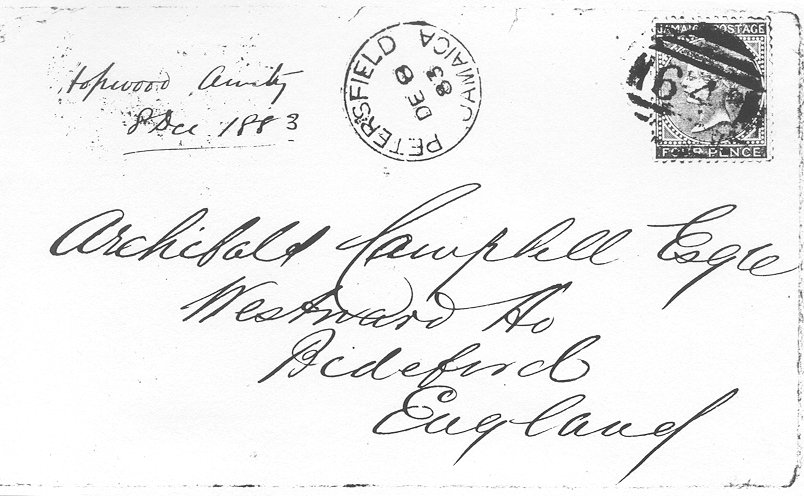 Hopwood Amity
8 Dec 1883
PETERSFIELD JAMAICA
DE 8
83
JAMAICA POSTAGE
64
FOUR PENCE
Archibald Campbell Esqre
Westward Ho
Bideford
England